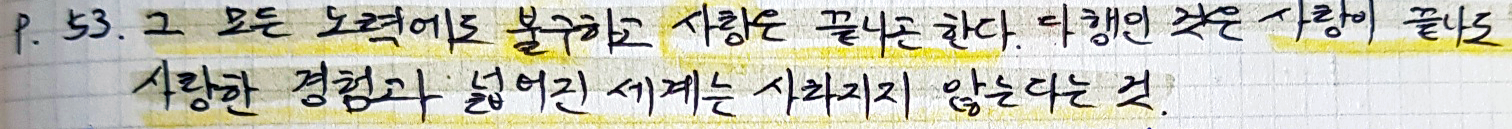 p. 53. 그 모든 노력에도 불구하고 사랑은 끝나곤 한다. 다행인 것은 사랑이 끝나도
사랑한 경험과 넓어진 세계는 사라지지 않는다는 것.